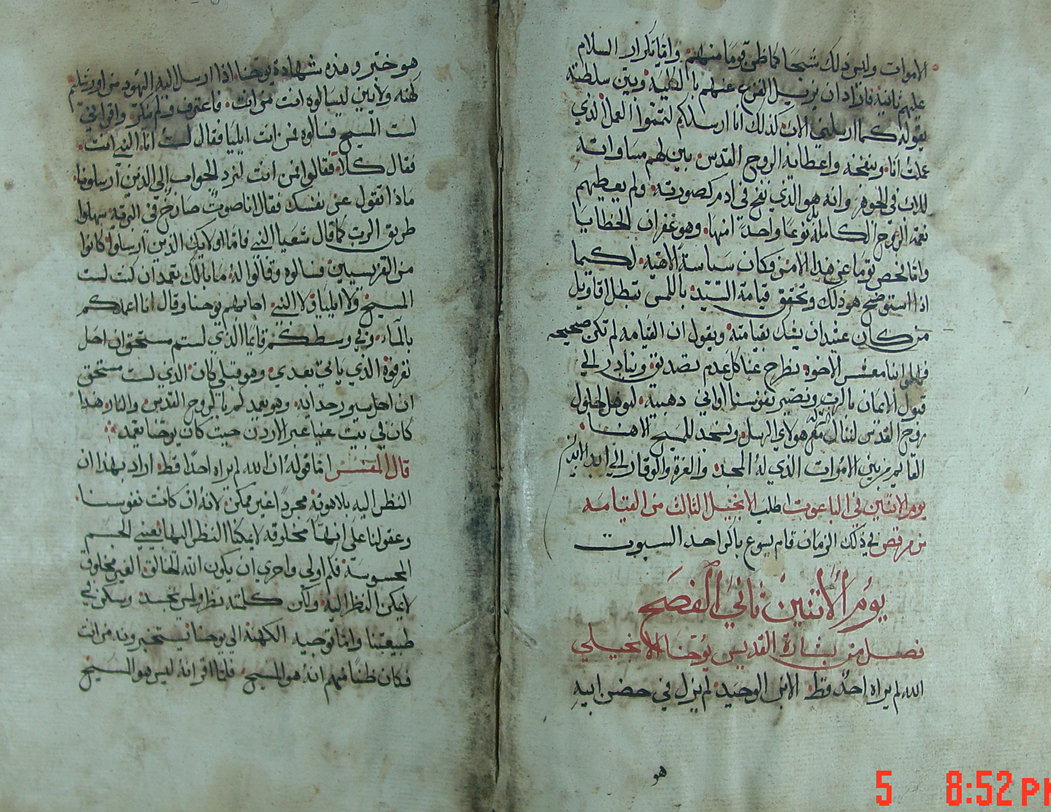 الاموات وليس ذلك شبحًا كما ظن قوما منهم واما تكرار السلام
عليهم ثانية فاراد ان يزيل الفزع عنهم بالكلية وبين سلطته
بقوله كما ارسلني الاب كذلك انا ارسلكم لتتموا العمل الذي
عملت انا وبنفخه واعطايه الروح القدس بين لهم مساواته
للاب في الجوهر وانه هو الذي نفخ في ادم كصورته ولم يعطيهم
نعمة الروح الكاملة نوعًا واحدًا منها وهو غفران الخطايا
واما فحص توما عن هذا الامر فكان سياسة الاهية لكيما
اذا استوضح هو ذلك وتحقق قيامة السيد باللمس تبطل اقاويل
من كان عتيدان يشك بقيامته ويقول ان القيامة لم تكن صحيحه
فهلموا بنا معشر الاخوة نطرح عنا كل عدم تصديق ونبادر الى
قبول الايمان بالرب ونصير نفوسنا اواني ذهبية لنوهل لحلول
روح القدس لننال ونسجد للمسيح الاهنا
القايم من بين الاموات الذي له المجد والعزة والوقار الى ابد الابدين
يوم الاثنين في الباعوت اطلب الانجيل الثالث من القيامه
من مرقص في ذلك الزمان قام يسوع باكر احد السبوت
يوم الاثنين ثاني الفصح
فصل من بشارة القديس يوحنا الانجيلي
الله لم يراه احدٌ قط الابن الوحيد لم يزل في حضن ابيه
هو
هو خبّر وهذه شهادة يوحنا اذا ارسل اليه اليهود من اورشليم
كهنه ولاويين ليسالوه انت من انت فاعترف ولم ينكر واقر اني
لست المسيح فسالوه فمن انت ايليا فقال لست انا النبي انت
فقال كلا فقالوا فمن انت لنرد الجواب الى الذين ارسلونا
ماذا تقول عن نفسك فقال انا صوت صارخ في البريه سهلوا
طريق الرب كما قال شعيا النبي فاما اوليك الذين ارسلوا كانوا
من الفريسيين فسالوه وقالوا له ما بالك تعمد ان كنت لست
المسيح ولا ايليا ولا النبي اجابهم يوحنا وقال انا اعمدكم
بالماء وفي وسطكم قايمًا الذي لستم
تعرفوه الذي ياتي بعدي وهو قبلي كان الذي لست مستحق
ان احل سيور حدايه وهو يعمدكم بالروح القدس والنار وهذا
كان في بيت عنيا عبر الاردن حيث كان يوحنا يعمد
قال المفسر اما قوله ان الله لم يراه احدًا قط اراد بهذا ان
النظر اليه بلاهوته مجردًا غير ممكن لانه ان كانت نفوسنا
وعقولنا على انها مخلوقة لا يمكنا النظر اليها بعيني الجسم
المحسوسة فكم اولى واحرى ان يكون الله الخالق الغير مخلوق
لا يمكن النظر اليه ولكن كلمته نظر وليس تجسد وسكن في
طبيعتنا واما توجيه الكهنة الى يوحنا يستخبرونه من انت
فكان ظنًا منهم انه هو المسيح فلما اقر انه ليس هو المسيح